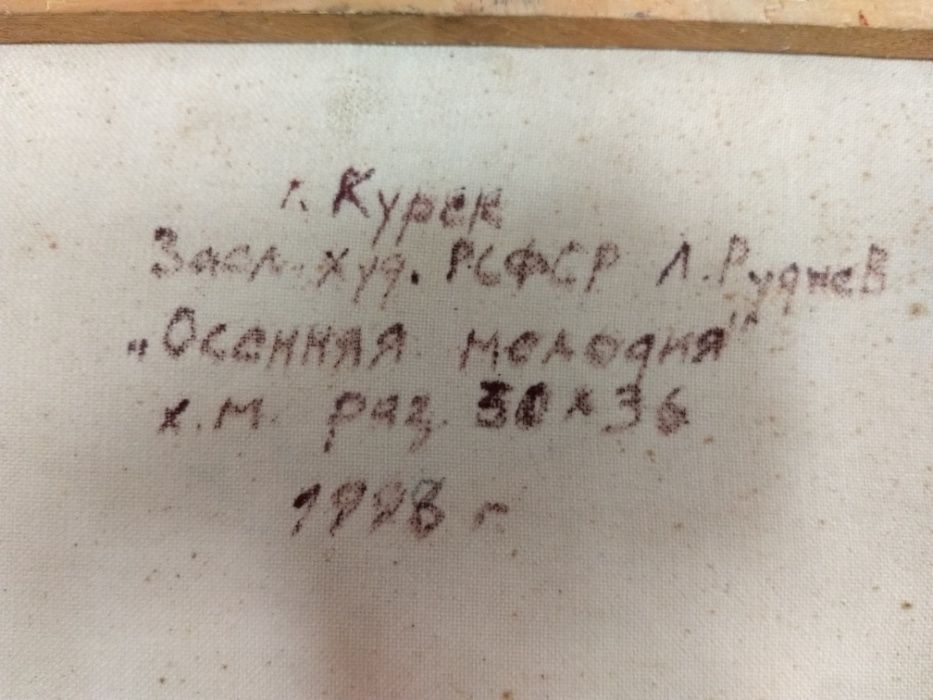 г. Курск
Засл. худ. РСФСР Л. Руднев
„Осенняя мелодия"
х.м. раз. 30 х 36
1998 г.